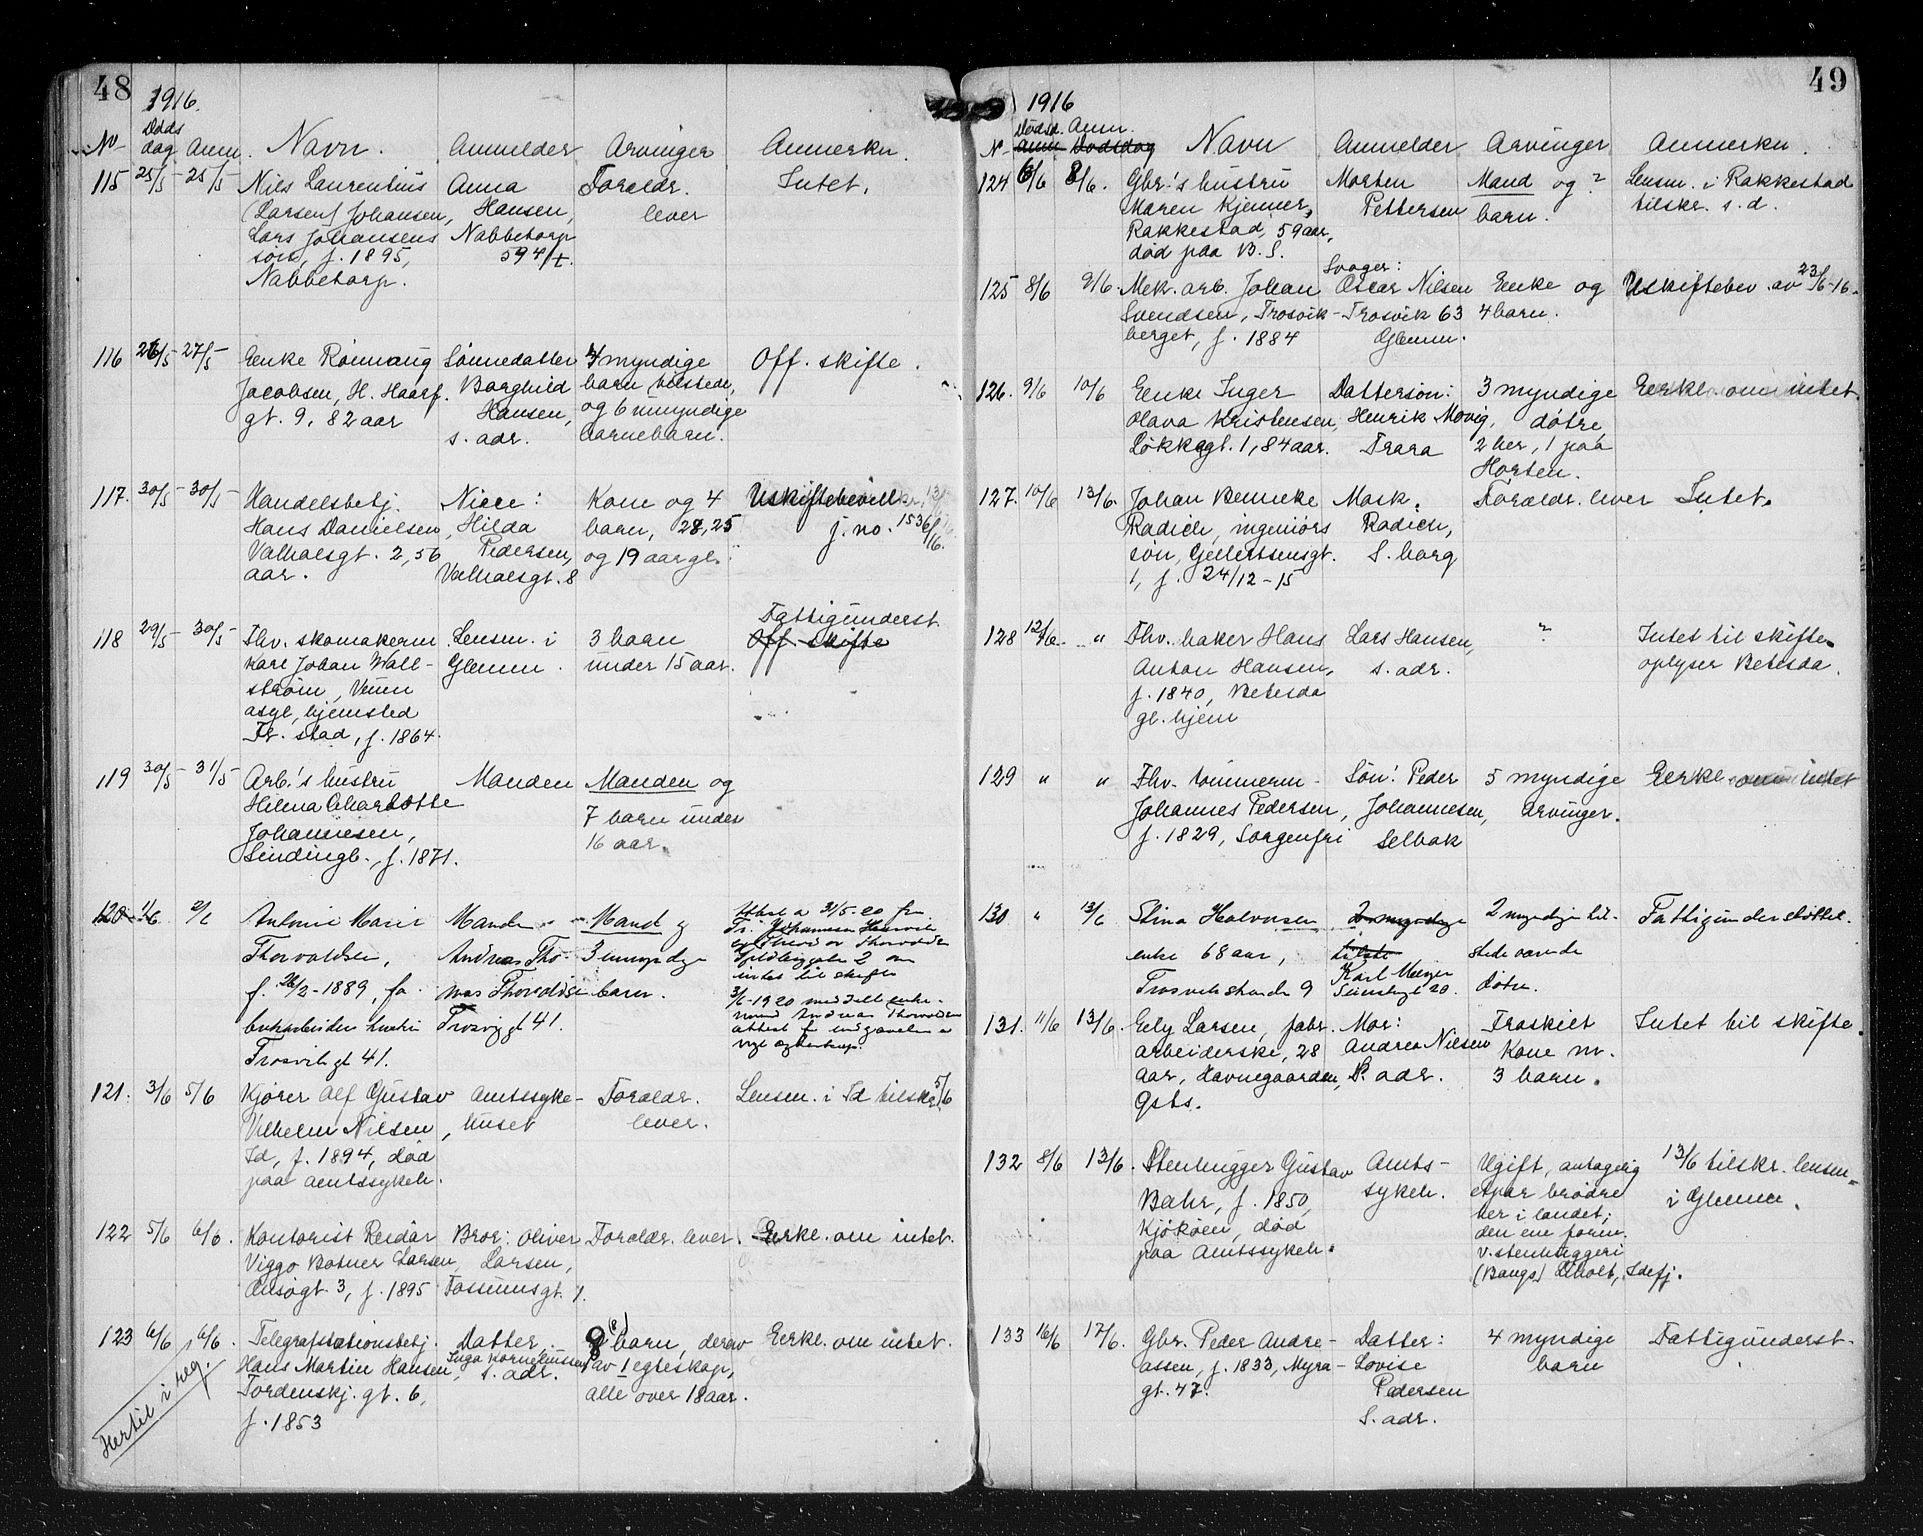 48
1916.
Døds
N- dag Anm. Navn. Anmelder Arvinger Anmerkn.
115 25/5 - 25/5 Nils Laurentius Anna Forældr. Intet.
(Larsen) Johansen, Hansen, lever
Lars Johansens Nabbetorp
søn, f. 1895, 594/t.
Nabbetorp.
116 26/5 - 27/5 - Enke Rønnaug Sønnedatter 4 myndige Off. skifte.
Jacobsen, H. Haarf. Borghild barn tilstede,
gt. 9, 82 aar Hansen, og 6 umyndige
s. adr. barnebarn.
117. 30/5 - 30/5 - Handelsbetj. Niece: Kone og 4 Uskiftebevill.
Hans Danielsen, Hilda barn, 28, 25 j. no. 1536/16.
Valhalsgt. 2, 56 Pedersen, og 19 aar gl.
aar. Valhalsgt. 8
Fattigunderst.
118 29/5 - 30/5 - Fhv. skomakerm Lensm. i 3 barn Off. skifte
Karl Johan Wall- Glemm. under 15 aar.
strøm, Veum
asyl, hjemsted
Fr. stad, f. 1864.
119 30/5 - 31/5 Arb.'s hustru Manden Manden og
Hilma Charlotte 7 barn under
Johannesen, 16 aar.
Lindingb., f. 1871.
120 1/6 2/6 Antonie Marie Manden Mand og
Thorvaldsen, Andreas Tho- 3 umyndige
f. 26/2 - 1889, fa- mas Thorvaldsen barn.
brikarbeiders hustru Trosvigt 41.
Trosvik gt 41.
Attest a 31/5-20 fra
Fr. Johannesen
Thorvaldsen
2 om
intet til skifte
3/6-1920 meddelt enke-
mand Andreas Thorvaldsen
attest
121. 3/6 5/6 Kjører Alf Gustav Amtssyke- Forældr. Lensm. i Id tilskr. 5/6
Vilhelm Nilsen, huset lever.
Id, f. 1894, død
paa amtssykeh.
122 5/6 6/6. Kontorist Reidar Bror: Oliver Forældr. lever. Erkl. om intet.
Viggo Botner Larsen, Larsen,
Ousøgt. 3, f. 1895 Fossumsgt. 1.
123 6/6 6/6. Telegrafstationsbetj. Datter, 8 (8) barn, derav Erkl. om intet.
Hans Martin Hansen, Inga Korneliussen av 1 egteskap,
Tordenskj. gt. 6, s. adr. alle over 18 aar.
f. 1853
Hertil i reg.
49
1916
Dødsd. Anm.
N- Anm Dødsdag Navn Anmelder Arvinger Anmerkn.
124 6/6 8/6. Gbr.'s hustru Morten Mand og ? Lensm. i Rakkestad
Maren Kjenner, Pettersen barn. tilskr. s. d.
Rakkestad, 59 aar,
død paa B. S.
Svoger:
125 8/6 9/6. Mek. arb. Johan Oscar Nilsen Enke og Uskiftebev. av 23/6-16.
Svendsen, Trosvik- Trosvik 63 4 barn.
berget, f. 1884 Glemm.
126. 9/6 10/6 Enke Inger Dattersøn: 3 myndige Erkl. om intet.
Olava Kristensen, Henrik Movig, døtre,
Løkkegt. 1, 84 aar. Trara 2 her, 1 paa
Horten.
127. 10/6 13/6. Johan Benneke Mask. Forældr. lever Intet.
Radich, ingeniørs Radich,
søn, Gullertsensgt. S. borg
1, f. 24/12 - 15
128 12/6 - " Fhv. baker Hans Lars Hansen, ? Intet til skifte
Anton Hansen, s. adr. oplyser Betesda.
f. 1840, Betesda
gl. hjem
129 " " Fhv. tømmerm - Søn: Peder 5 myndige Erkl. om intet
Johannes Pedersen, Johannesen, arvinger.
f. 1829, Sorgenfri Selbak
130 " 13/6 Stina Halvorsen 2 myndige 2 myndige til- Fattigunderstøttet.
enke 68 aar, tilste stede værende
Trosvikstrande 9 Karl Meyer døtre.
20.
131. 11/6 13/6. Elly Larsen, fabr. Mor: Fraskilt Intet til skifte.
arbeiderske, 28 Andrea Nilsen Kone m.
aar, Havnegaarden, s. adr. 3 barn.
Gsts.
132 8/6 13/6. Stenhugger Gustav Amts- Ugift, antagelig 13/6 tilskr. lensm.
Bahr, f. 1850, sykeh. et par brødre i Glemm.
Kjøkøen, død her i landet;
paa Amtssykeh. den ene form.
v. stenhuggeri
(Bangs) Liholt, Idefj.
133 16/6 17/6. Gbr. Peder Andre- Datter: 4 myndige Fattigunderst.
assen, f. 1833, Myra- Lovise barn
gt. 47. Pedersen
S. adr.